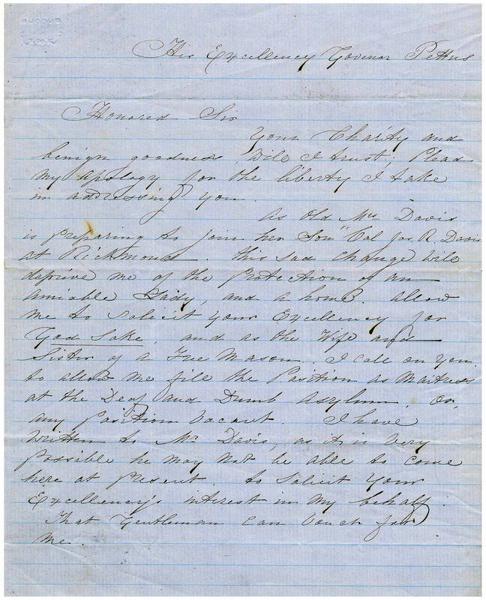 His Excellency Govenor Pettus
Honored Sir
Your Charity and
benign goodness Will I trust, Plead
my apology for the liberty I take
in addressing you.
As Old Mrs Davis
is preparing to join her Son "Col Jos R. Davis
at Richmond. this sad change will
deprive me of the Protection of an
amiable Lady, and a home. allow
me to solicit your Excellency for
God Sake, and as the Wife and
Sister of a Free Mason. I call on you.
to allow me fill the Position as Matress
at the Deaf and Dumb Asylum. Or,
any Position Vacant. I have
Written to Mr Davis, as it is Very
Possible he may not be able to come
here at Present. to solicit your
Excellency's interest in my behalf.
That Gentleman can Vouch for
me.